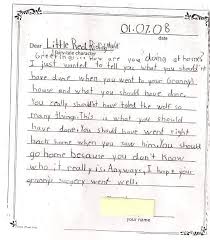 01.07.08
date
Dear Little Red Riding Hood
fairytale character
Greetings... How are you doing at home?
I just wanted to tell you what you should'nt
have done when you went to your Granny's
house and what you should have done.
You really should'nt have toled the wolf so
many things. This is what you should
have done. You should have went right
back home when you saw him. You should
go home because you don't know
who it really is. Anyways, I hope your
granny's surgery went well.
your name